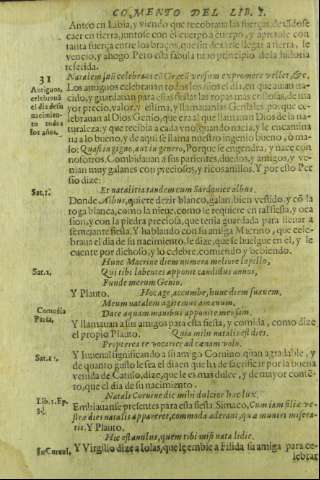 COMENTO DEL LIB. 7.
Anteo en Libia, y viendo que recobraua las fuerças, dexandose
caer en tierra, juntose con el cuerpo a cuerpo, y apretole con
tanta fuerça entre los braços, que sin dexarle llegar a tierra, le
vencio, y ahogo. Pero esta fabula tuuo principio de la historia
referida.
31
Antiguos,
celebrauã
el dia de su
nacimien-
to todos
los años.
Los antiguos celebrauan todos los años el dia, en que auian na-
cido, y guardauan para estas fiestas las ropas mas costosas, de ma
yor precio, valor, y estima, y llamauanlas Genïales, porque ce-
lebrauan al Dios Genio, que era al que llamauan Dios de la na-
turaleza, y que recibia a cada vno, quando nacia, y le encamina
ua a lo bueno, y de aqui se llama nuestro ingenio bueno, o ma-
lo: Quasi in gigno, aut in genero, Porque se engendra, y nace con
nosotros. Combidauan a sus parientes, dueños, y amigos, y ve-
nian muy galanes con preciosos, y ricos anillos. Y por esto Per
sio dize:
Sat. 1.
Et natalitia tandem cum Sardonice albus.
Donde Albus, quiere dezir blanco, galan, bien vestido, y cõ la
toga blanca, como la nieue, como se requiere en tal fiesta, y oca
sion, y con la piedra preciosa, que tenia guardada para lleuar a
semejante fiesta. Y hablando con su amigo Macrino, que cele-
braua el dia de su nacimiento, le dize, que se huelgue en el, y le
cuente por dichoso, y lo celebre, comiendo, y bebiendo.
Hunc Macrine diem numera meliore lapillo,
Sat. 2.
Qui tibi labentes apponit candidus annos,
Funde merum Genio.
Y Plauto. Hoc age, accumbe, hunc diem suauem,
Meum natalem agitemus amœnum,
Comedia
Persa.
Date aquam manibus apponite mensam.
Y llamauan a sus amigos para esta fiesta, y comida, como dize
el propio Plauto. Quia mihi natalis est dies.
Propterea te vocari ad cœnam volo.
Sat. 11.
Y Iuuenal significando a su amigo Coruino, quan agradable, y
de quanto gusto le era el dia en que ha de sacrificar por la buena
venida de Catulo, dize, que le es mas dulce, y de mayor conte-
to, que el dia de su nacimiento.
Natali Coruine die mihi dulcior hæc lux.
Lib. 1. Ep.
Embiauanse presentes para esta fiesta Simaco, Cum iam filiæ ve-
stræ dies natalis appareret, commoda aderant, qua muneri miseral-
tis. Y Plauto.
Hic est anulus, quem tibi misi nata ledie.
In Bucol.
Y Virgilio dize a Iolas, que le embie a Filida su amiga para ce-
lebrar